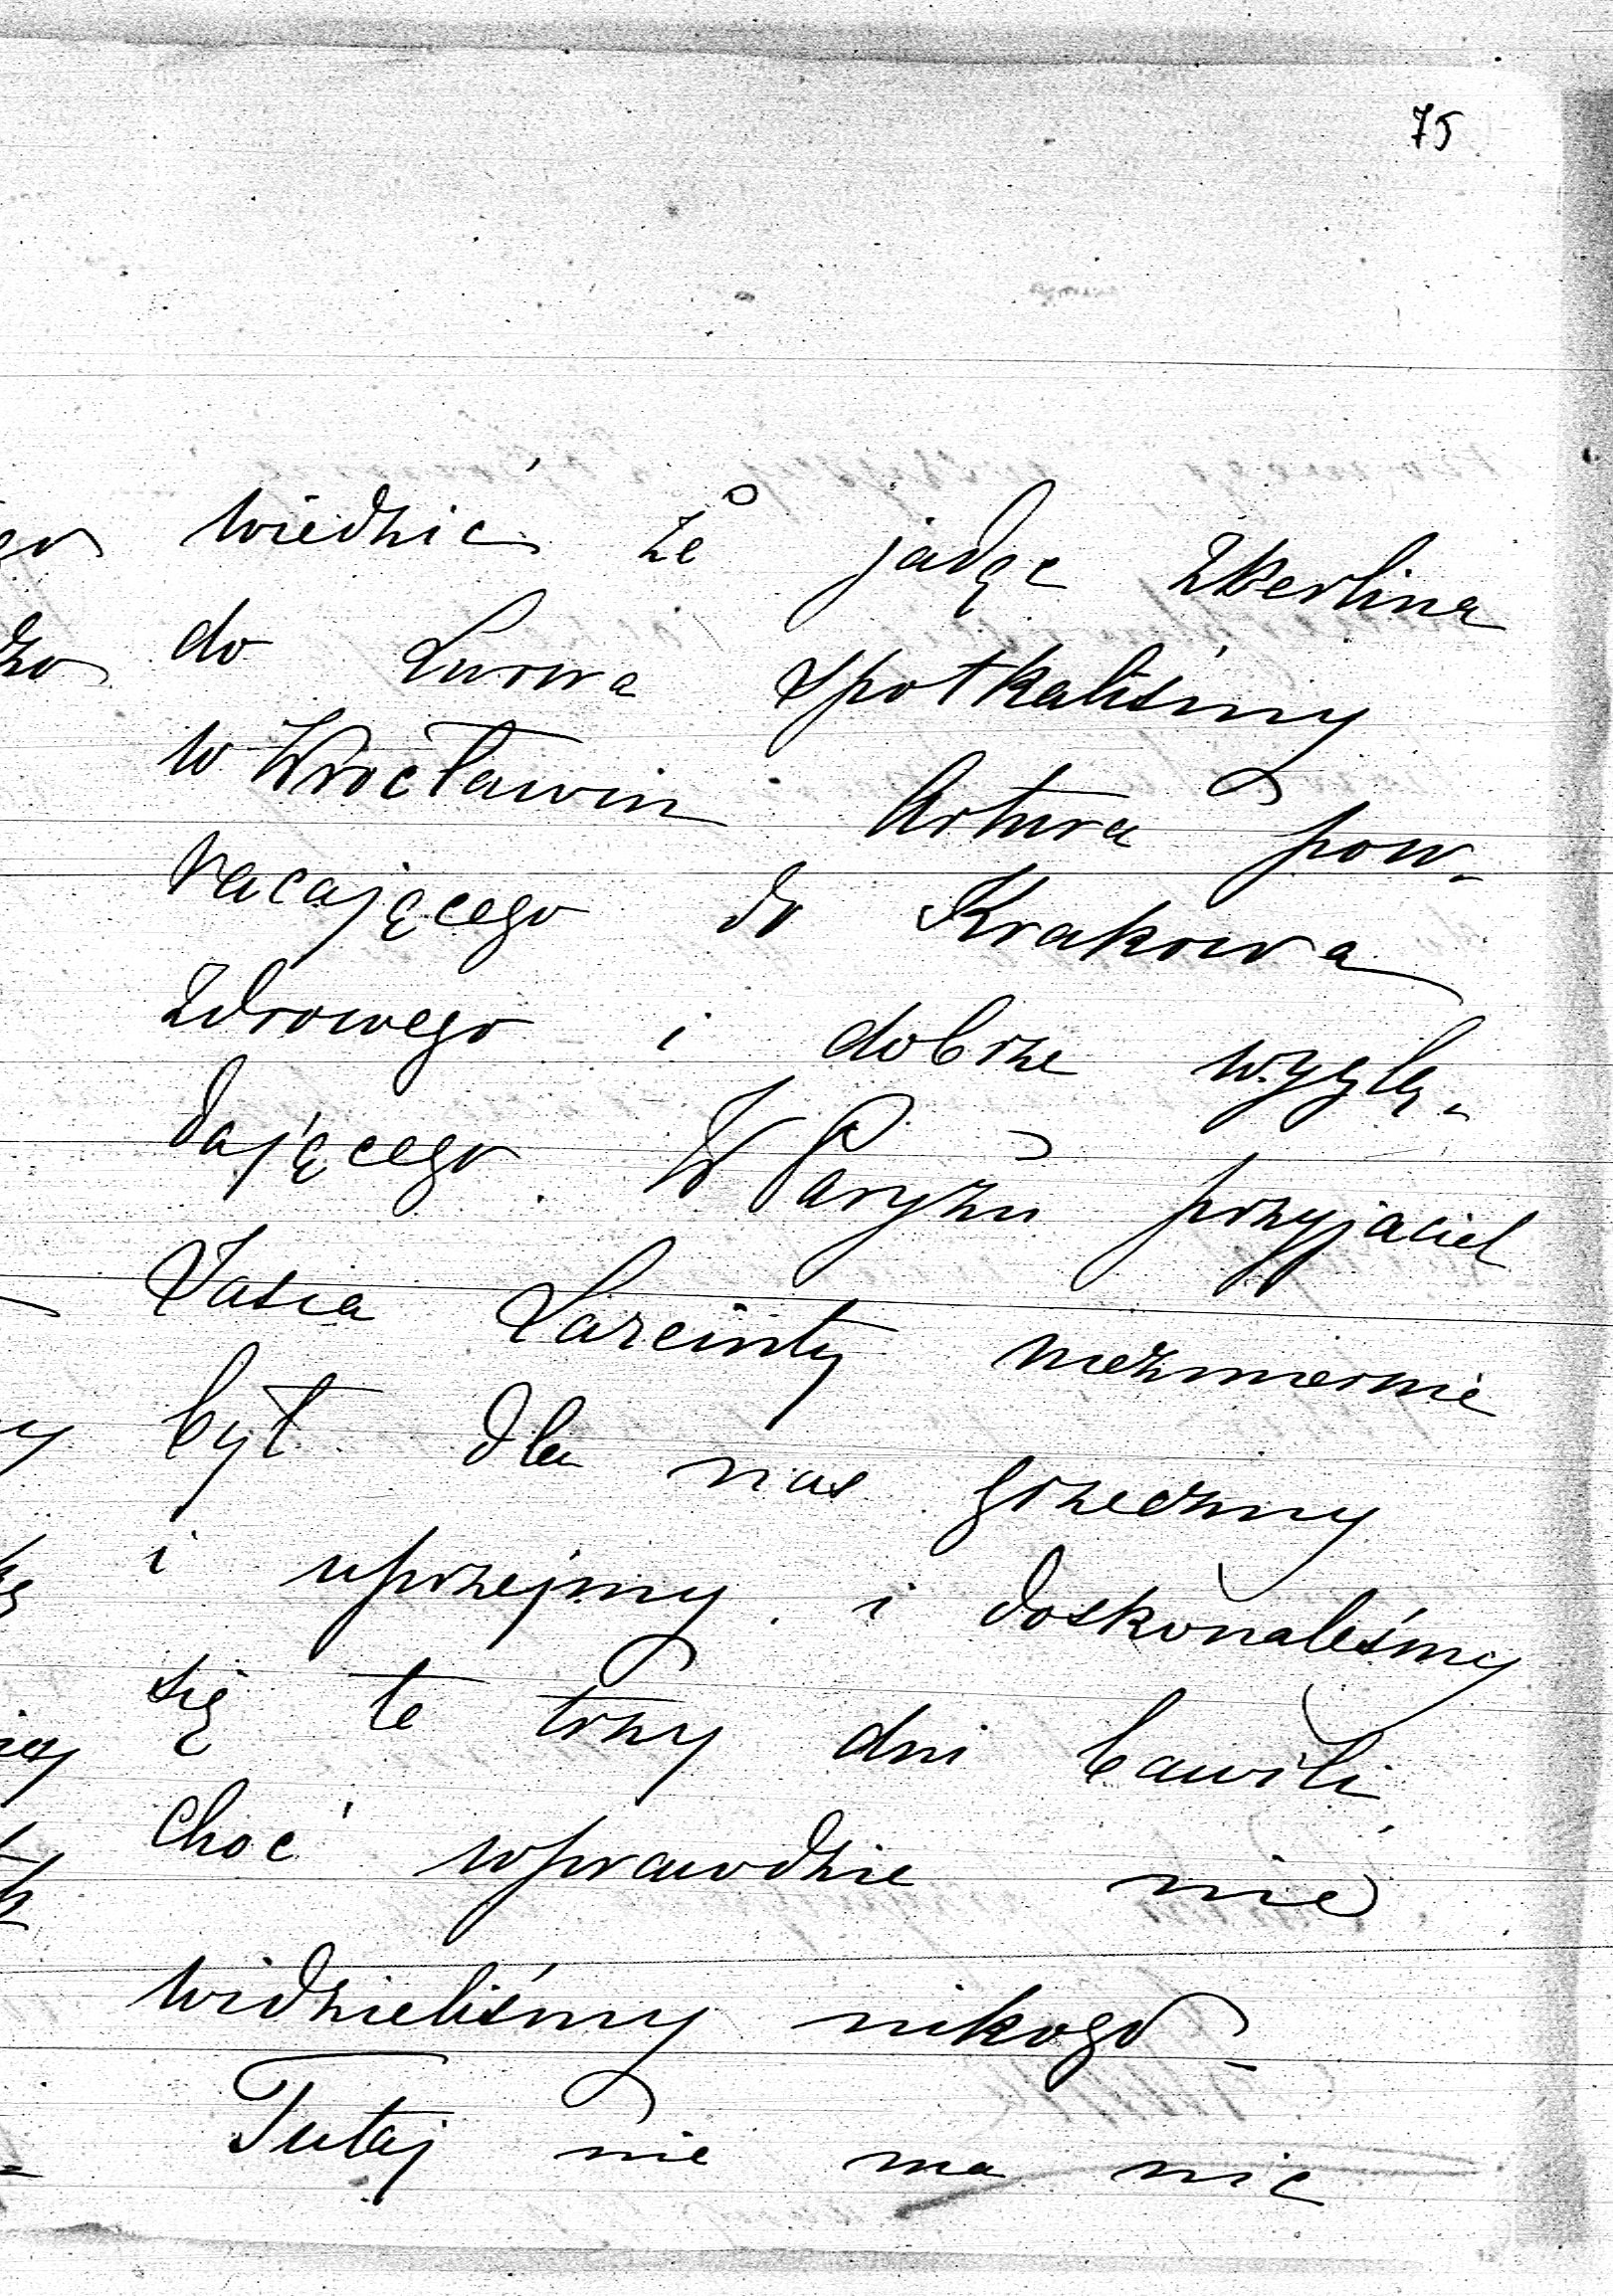 75
wiedzieć że jadąc z Berlina
do Lwowa spotkaliśmy
w Wrocławiu Artura pow-
racającego do Krakowa
zdrowego i dobrze wyglą-
dającego. W Paryżu przyjaciel
Jasia niezmiernie
był dla nas grzeczny
i uprzejmy. i doskonaleśmy
się te trzy dni bawili,
choć wprawdzie nie
widzieliśmy nikogo -
Tutaj nie ma nic